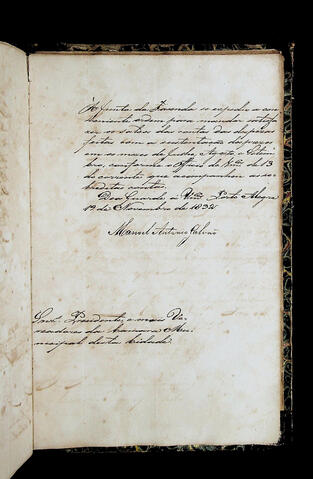 A' Junta da Fazenda se expedio a con-
veniente ordem para mandar satisfa-
zer os saldos das contas das despezas
feitas com a sustentação de prezos
em os mezes de Junho, Agosto e Setem-
bro, conforme o Officio de Vmces de 13
do corrente que acompanhou as so-
breditas contas.
Deos Guarde a Vmces Porto Alegre
19 de Novembro de 1832
Manoel Antonio Galvão
Snres Presidente e mais Ve-
readores da Camara Mu-
nicipal desta Cidade.